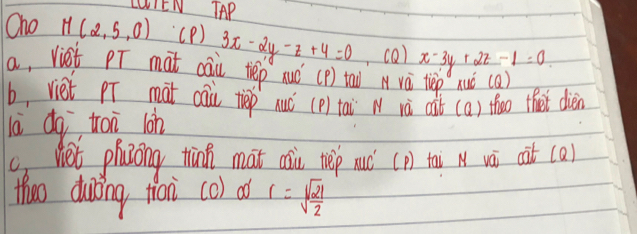 LUYEN TAP
Cho M(2,5,0) (P) 3x-2y-z+4=0, (Q) x-3y+2z-1=0.
a, Viết PT mặt cầu tiếp xuc (P) tại M và tiếp xuc (Q)
b, viết PT mặt cầu tiếp xuc (P) tại M và cắt (Q) theo thiết diện
là đg tròn lớn
c, viết phương trình mặt cầu tiếp xuc (P) tại M và cắt (Q)
theo đường tròn (C) có r = √21/2